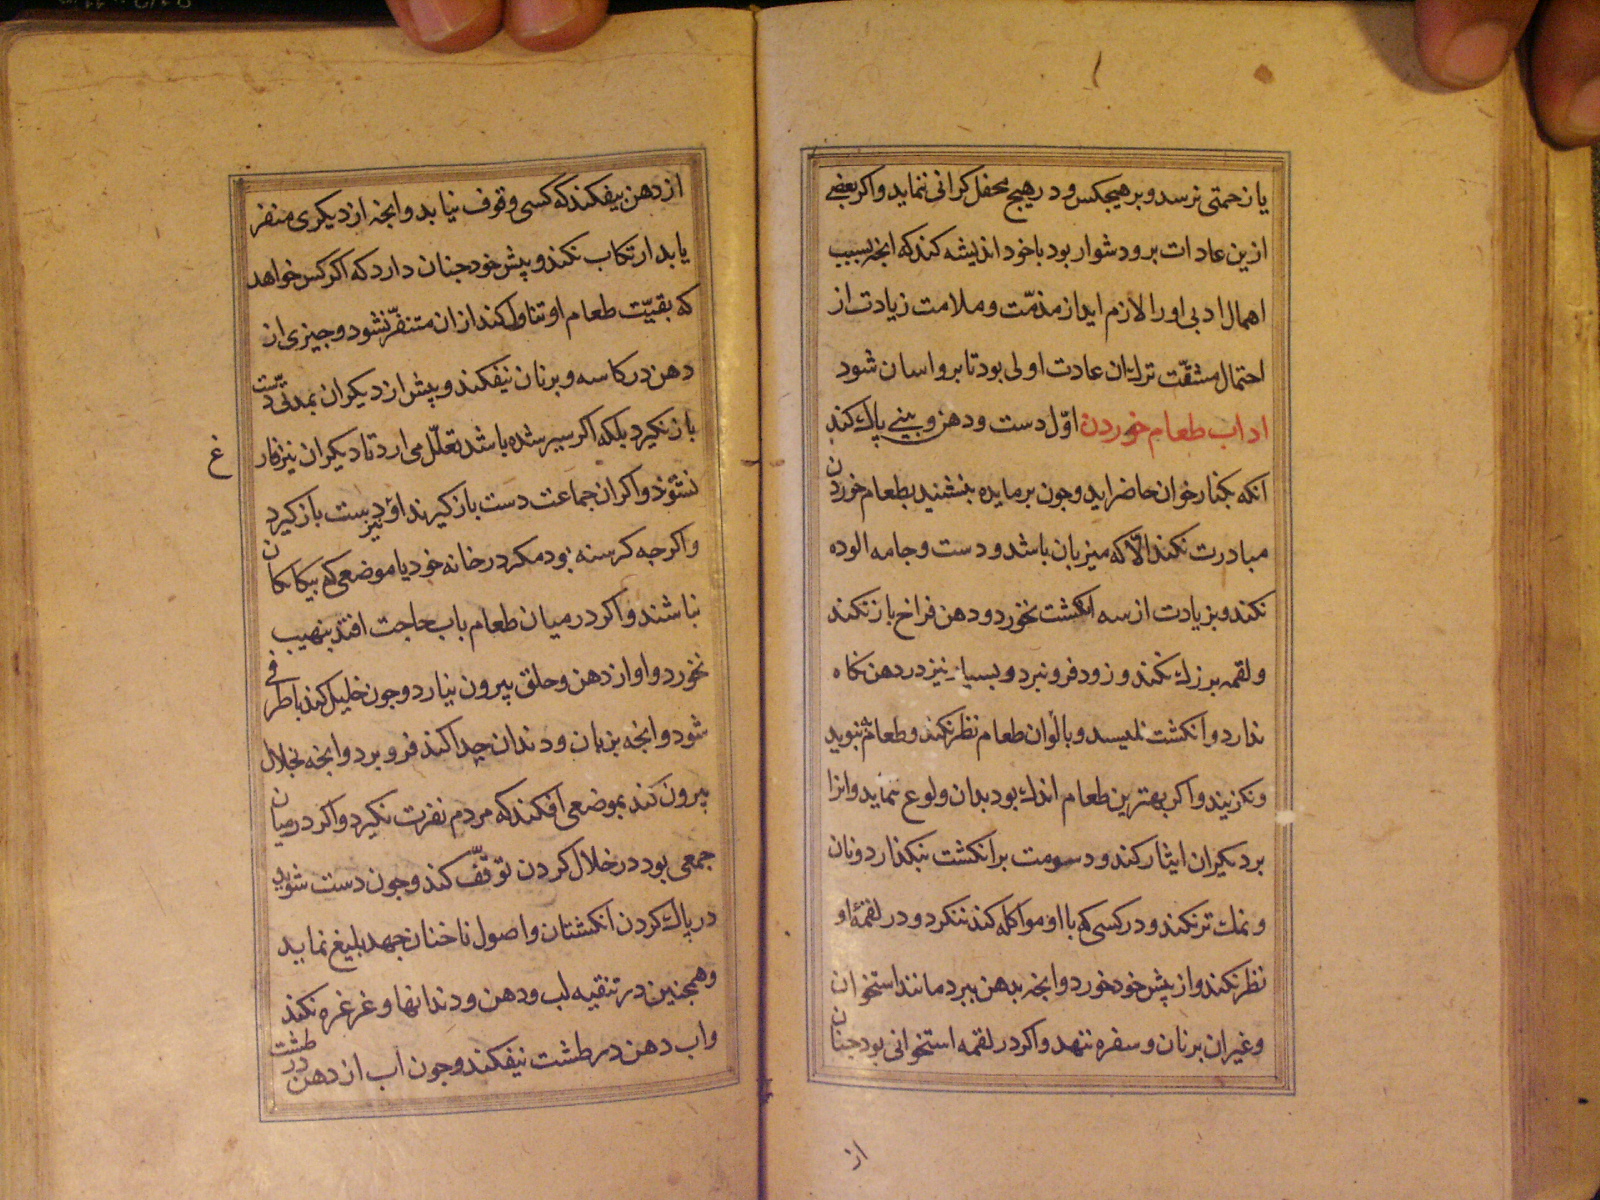 یا زحمتی نرسد و بر هیچکس و در هیچ محفل کرانی ننماید و اکر بعضی
ازین عادات برو دشوار بود با خود اندیشه کند که انجه بسبب
اهمال ادبی او را لازم اید از مذمّت و ملامت زیادت از
احتمال مشقّت ترك ان عادت اولی بود تا برو اسان شود
اداب طعام خوردن اوّل دست و دهن و بینی پاك کند
انکه بکنار خوان حاضر اید و جون بر مایده بنشیند بطعام خوردن
مبادرت نکند الّا که میزبان باشد و دست و جامه الوده
نکند و بزیادت از سه انکشت نخورد و دهن فراخ باز نکند
و لقمه بزرك نکند و زود فرو نبرد و بسیار نیز در دهن نکاه
ندارد و انکشت نلیسد و بالوان طعام نظر نکند و طعام نبوید
و نکزیند و اکر بهترین طعام اندك بود بدان ولوع ننماید و انرا
بر دیکران ایثار کند و دسومت بر انکشت نبکذارد و نان
و نمك تر نکند و در کسی که با او مواکله کند ننکرد و در لقمهٔ او
نظر نکند و از پیش خود خورد و انجه بدهن برد مانند استخوان
و غیر ان بر نان و سفره ننهد و اکر در لقمه استخوانی بود جنان
از
از دهن بیفکند که کسی وقوف نیابد و انجه از دیکری منفر
یابد ارتکاب نکند و پیش خود جنان دارد که اکر کس خواهد
که بقیّت طعام او تناول کند از ان متنفّر نشود و جیزی از
دهن در کاسه و بر نان نیفکند و پیش از دیکران بمدتی دست
باز نکیرد بلکه اکر سیر شده باشد تعلّل می ارد تا دیکران نیز فار
غ
نشوند و اکر ان جماعت دست باز کیرند او نیز دست باز کیرد
و اکرجه کرسنه بود مکر در خانه خود یا موضعی که بیکانکان
نباشند و اکر در میان طعام باب حاجت افتد بنهیب
نخورد و اواز دهن و حلق بیرون نیارد و جون خلیل کند با طرفی
شود و انجه بزبان و دندان جدا کند فرو برد و انجه بخلال
بیرون کند بموضعی افکند که مردم نفرت نکیرد و اکر در میان
جمعی بود در خلال کردن توقّف کند و جون دست شوید
در پاك کردن انکشتان و اصول ناخنان جهد بلیغ نماید
و همجنین در تنقیه لب و دهن و دندانها و غرغره نکند
و اب دهن در طشت نیفکند و جون اب از دهن در طشت